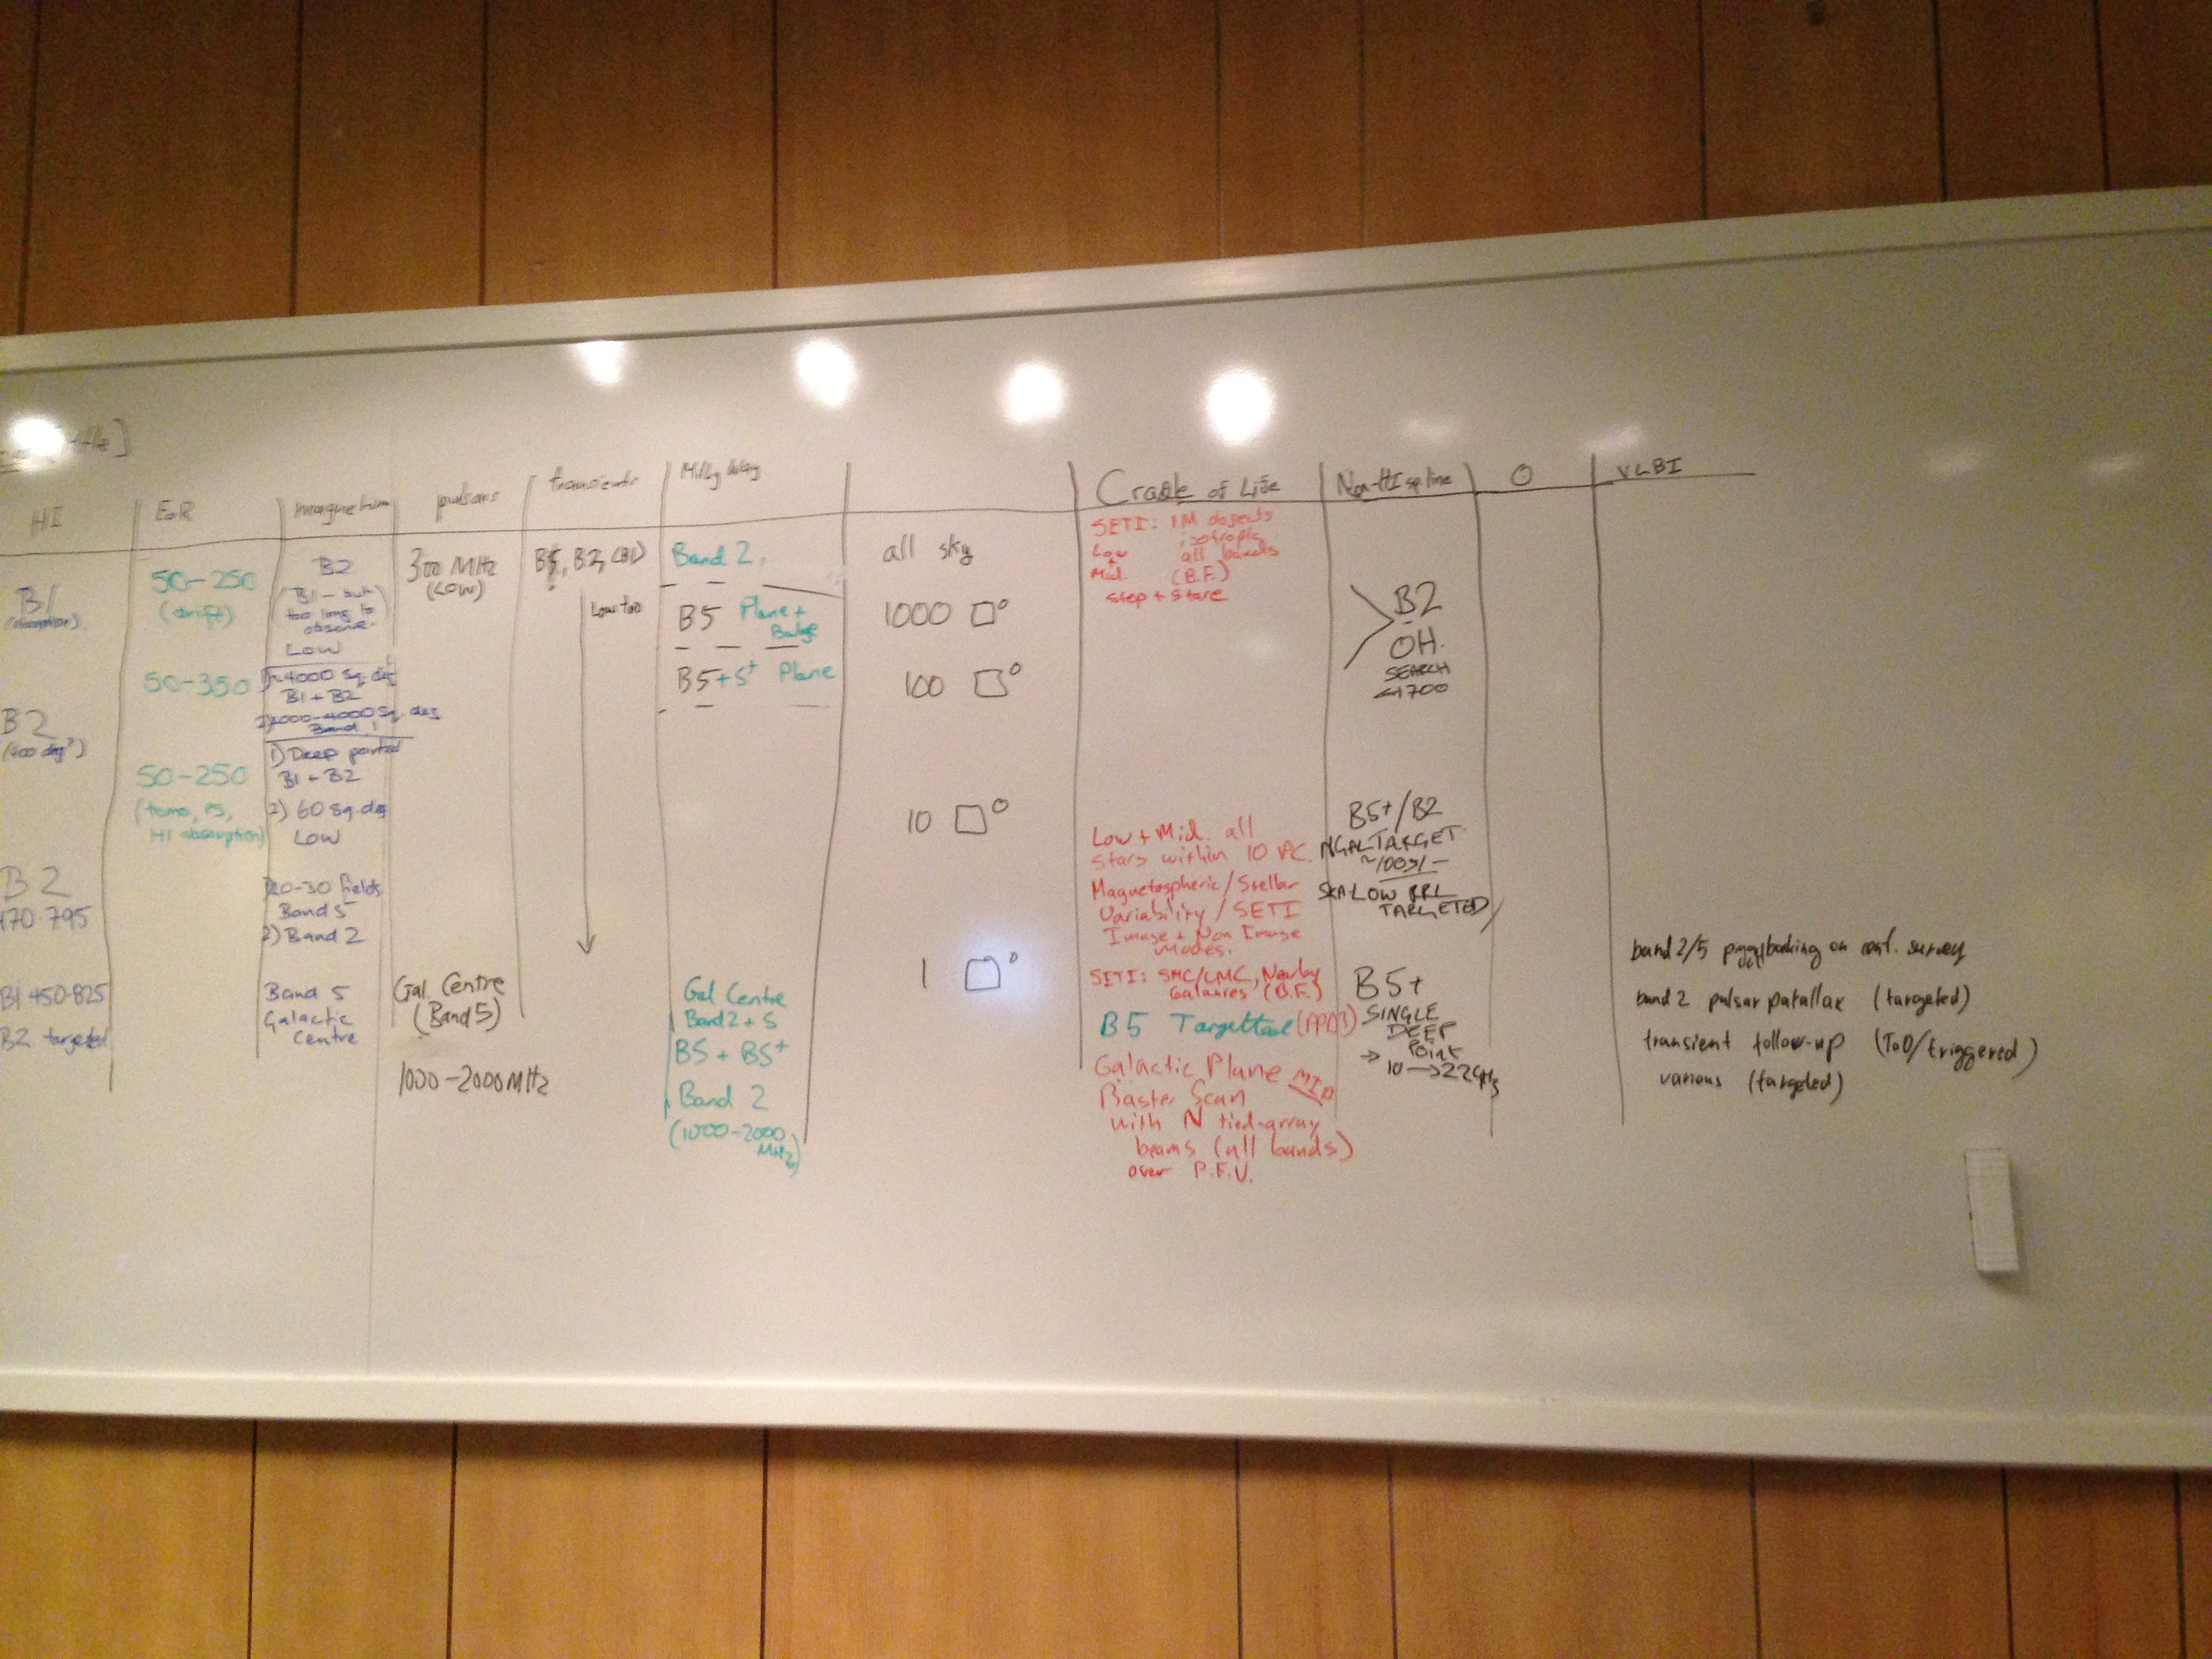 HI
B1
(absorption)
B2
(400 deg²)
B2
470-795
B1 450-825
B2 targeted
EoR
50-250
(drift)
50-350
50-250
(tomo, PS,
HI absorption)
magnetism
B2
(B1 - but
too long to
observe.
LOW
1) ~4000 sq. deg
B1 + B2
2) 2000-4000 sq. deg
Band 1
1) Deep pointed
B1 + B2
2) 60 sq. deg
LOW
1) 20-30 fields
Band 5
2) Band 2
Band 5
Galactic
Centre
pulsars
300 MHz
(LOW)
Gal. Centre
(Band 5)
1000-2000 MHz
transients
B5, B2, (B1)
Low too
Milky Way
Band 2,
B5 Plane +
Bulge
B5+5⁺ Plane
Gal Centre
Band 2 + 5
B5 + B5⁺
Band 2
(1000-2000
MHz)
all sky
1000 □°
100 □°
10 □°
1 □°
Cradle of Life
SETI: 1M objects
isotropic
Low all bands
+
Mid. (B.F.)
step + stare
Low + Mid. all
stars within 10 PC.
Magnetospheric/Stellar
Variability/SETI
Image + Non Image
Modes.
SETI: SMC/LMC, Nearby
Galaxies (B.F.)
B5 Targetted
Galactic Plane MID
Raster Scan
with N tied-array
beams (all bands)
over P.F.V.
Non-HI sp line
B2
OH.
SEARCH
<1700
B5+/B2
NGAL TARGET
~100s/-
SKA-LOW RRL
TARGETED
B5+
SINGLE
DEEP
POINT
→ 10→22GHz
O
VLBI
band 2/5 piggybacking on cont. survey
band 2 pulsar parallax (targeted)
transient follow-up (ToO/triggered)
various (targeted)